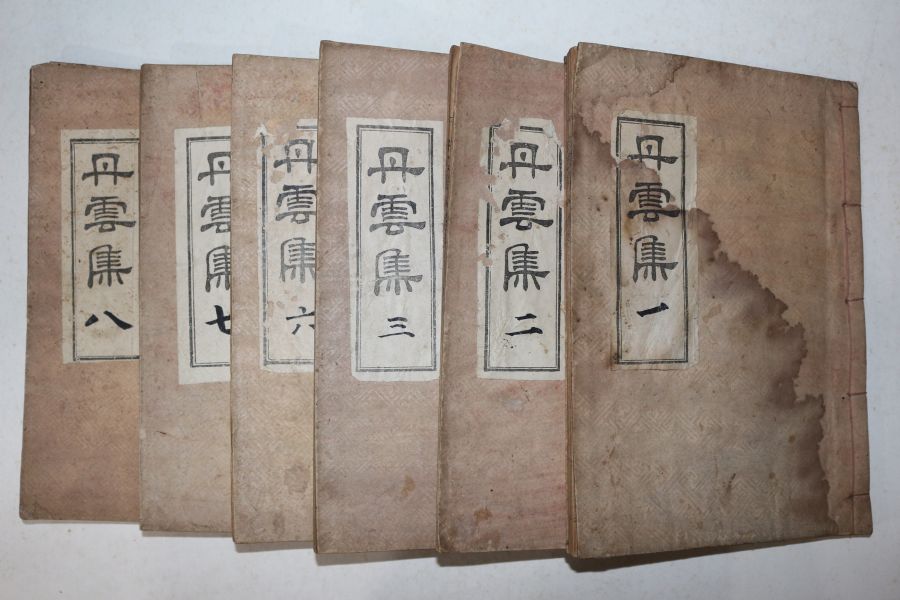 丹雲集 一
丹雲集 二
丹雲集 三
丹雲集 六
丹雲集 七
丹雲集 八